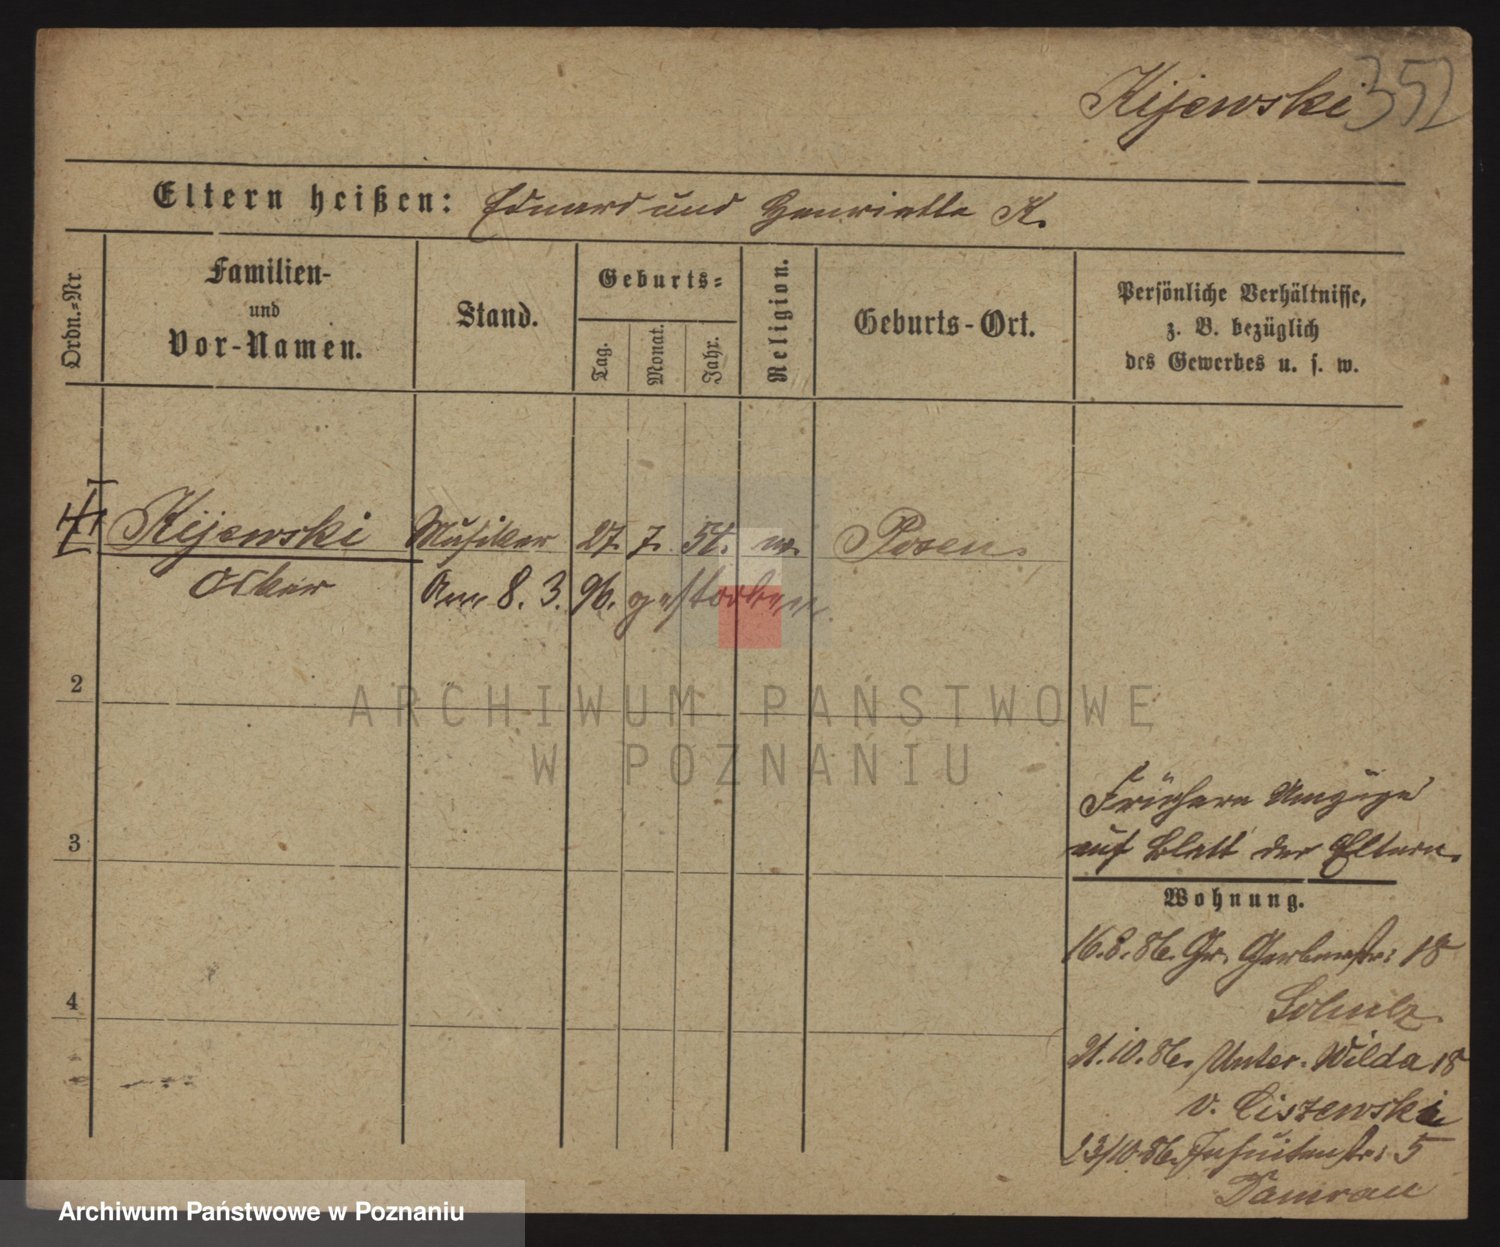 Kijewski 352
Eltern heißen: Eduard und Henriette K.
Ordn.-Nr.
Familien-
und
Vor-Namen.
Stand.
Geburts-
Tag.
Monat.
Jahr.
Religion.
Geburts-Ort.
Persönliche Verhältnisse,
z. B. bezüglich
des Gewerbes u. s. w.
Kijewski Musiker 27. 7. 54. Posen.
Oskar Am 8. 3. 96. gestorben
2
ARCHIWUM PAŃSTWOWE
W POZNANIU
Frühere Umzüge
3
auf Blatt der Eltern.
Wohnung.
16.8.86. Gr. Gerberstr: 18
4
Scholz
21.10.86. Unter-Wilda 18
v. Ciszewski
23/10.86. Jesuitenstr: 5
Archiwum Państwowe w Poznaniu